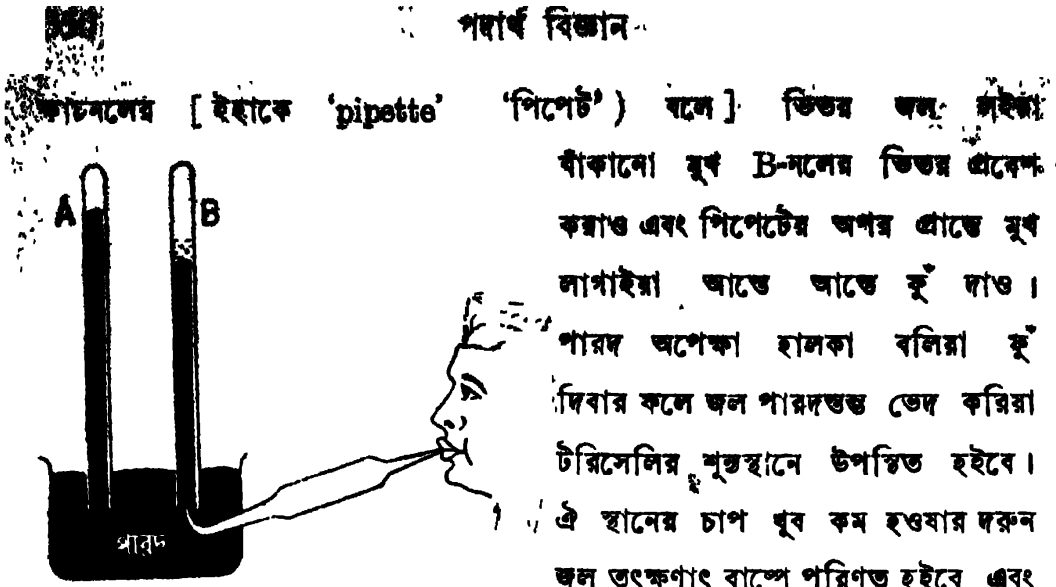 পদার্থ বিজ্ঞান
কাচনলের [ ইহাকে ‘pipette’ ‘পিপেট’ ) বলে ] ভিতর জল লইয়া
বাঁকানো মুখ B-নলের ভিতর প্রবেশ
করাও এবং পিপেটের অপর প্রান্তে মুখ
লাগাইয়া আস্তে আস্তে ফুঁ দাও ।
পারদ অপেক্ষা হালকা বলিয়া ফুঁ
দিবার ফলে জল পারদস্তম্ভ ভেদ করিয়া
টরিসেলির শূন্যস্থানে উপস্থিত হইবে ।
ঐ স্থানের চাপ খুব কম হওয়ার দরুন
জল তৎক্ষণাৎ বাষ্পে পরিণত হইবে এবং
A
B
পারদ